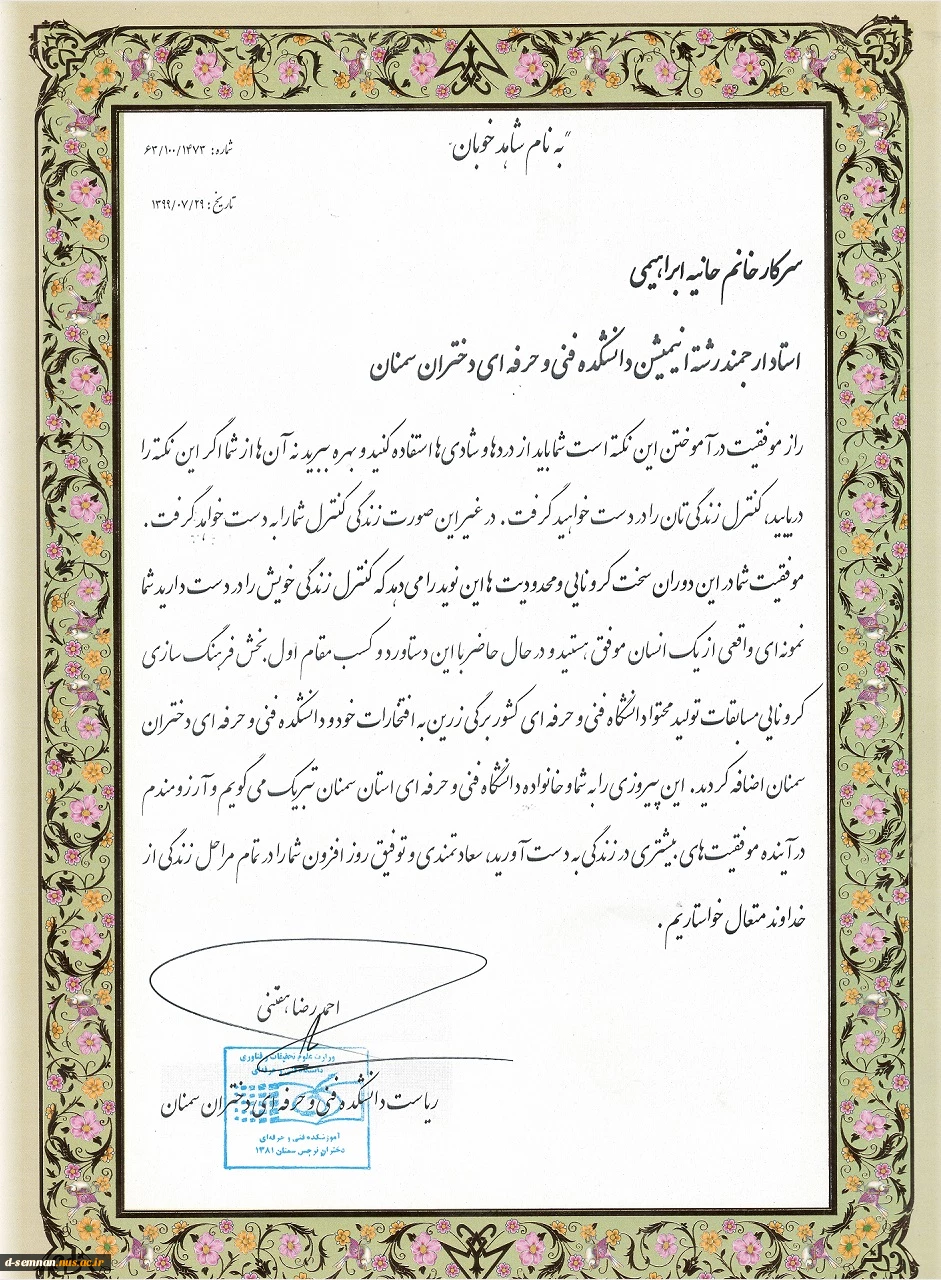 "به نام شاهد خوبان"
شماره: ۶۳/۱۰۰/۱۴۷۳
تاریخ: ۱۳۹۹/۰۷/۲۹
سرکار خانم حانیه ابراهیمی
استاد ارجمند رشته انیمیشن دانشکده فنی و حرفه ای دختران سمنان
راز موفقیت در آموختن این نکته است شما باید از دردها و شادی ها استفاده کنید و بهره ببرید نه آن ها از شما اگر این نکته را
دریابید، کنترل زندگی تان را در دست خواهید گرفت. در غیر این صورت زندگی کنترل شما را به دست خواهد گرفت.
موفقیت شما در این دوران سخت کرونایی و محدودیت ها این نوید را می دهد که کنترل زندگی خویش را در دست دارید شما
نمونه ای واقعی از یک انسان موفق هستید و در حال حاضر با این دستاورد و کسب مقام اول بخش فرهنگ سازی
کرونایی مسابقات تولید محتوا دانشگاه فنی و حرفه ای کشور برگی زرین به افتخارات خود و دانشکده فنی و حرفه ای دختران
سمنان اضافه کردید. این پیروزی را به شما و خانواده دانشگاه فنی و حرفه ای استان سمنان تبریک می گویم و آرزومندم
در آینده موفقیت های بیشتری در زندگی به دست آورید، سعادتمندی و توفیق روز افزون شما را در تمام مراحل زندگی از
خداوند متعال خواستاریم.
احمدرضا هفتنی
وزارت علوم تحقیقات و فناوری
دانشگاه فنی و حرفه‌ای
ریاست دانشکده فنی و حرفه ای دختران سمنان
آموزشکده فنی و حرفه‌ای
دختران نرجس سمنان ۱۳۸۱
d-semnan.nus.ac.ir